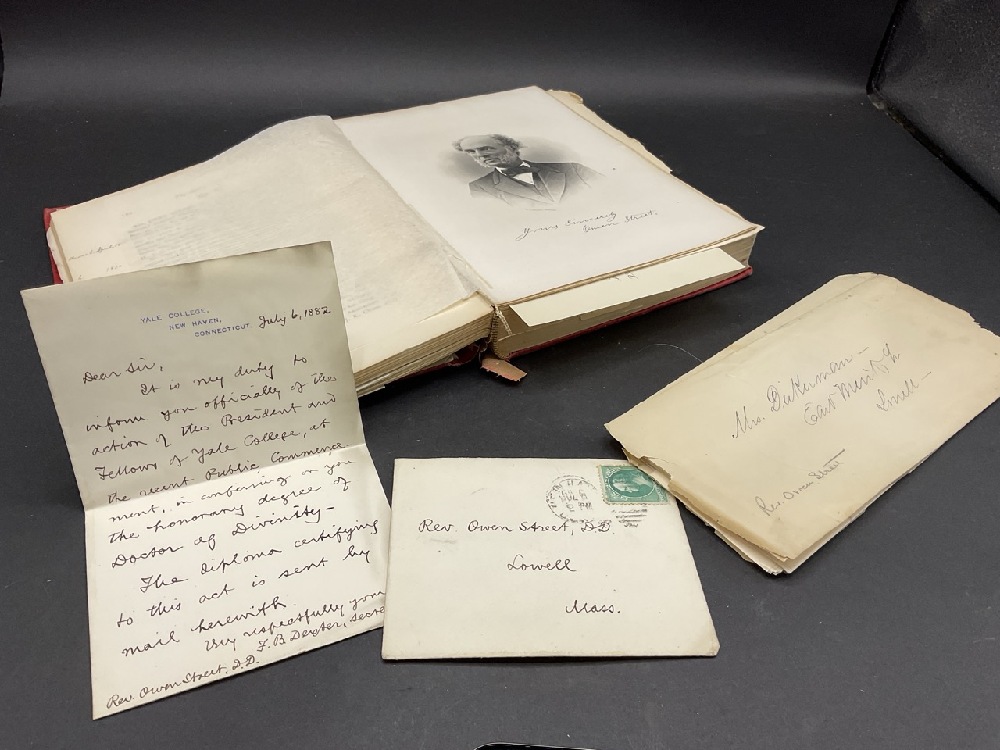 YALE COLLEGE,
NEW HAVEN,
CONNECTICUT
July 6, 1882
Dear Sir,
It is my duty to
inform you officially of the
action of the President and
Fellows of Yale College, at
the recent Public Commence-
ment, in conferring on you
the honorary degree of
Doctor of Divinity—
The diploma certifying
to this act is sent by
mail herewith
Very respectfully yours
F. B. Dexter, Secre
Rev. Owen Street, D.D.
Yours Sincerely
Owen Street.
Rev. Owen Street, D.D.
Lowell
Mass.
Mrs. Dickerman—
East
Lowell—
Rev. Owen Street